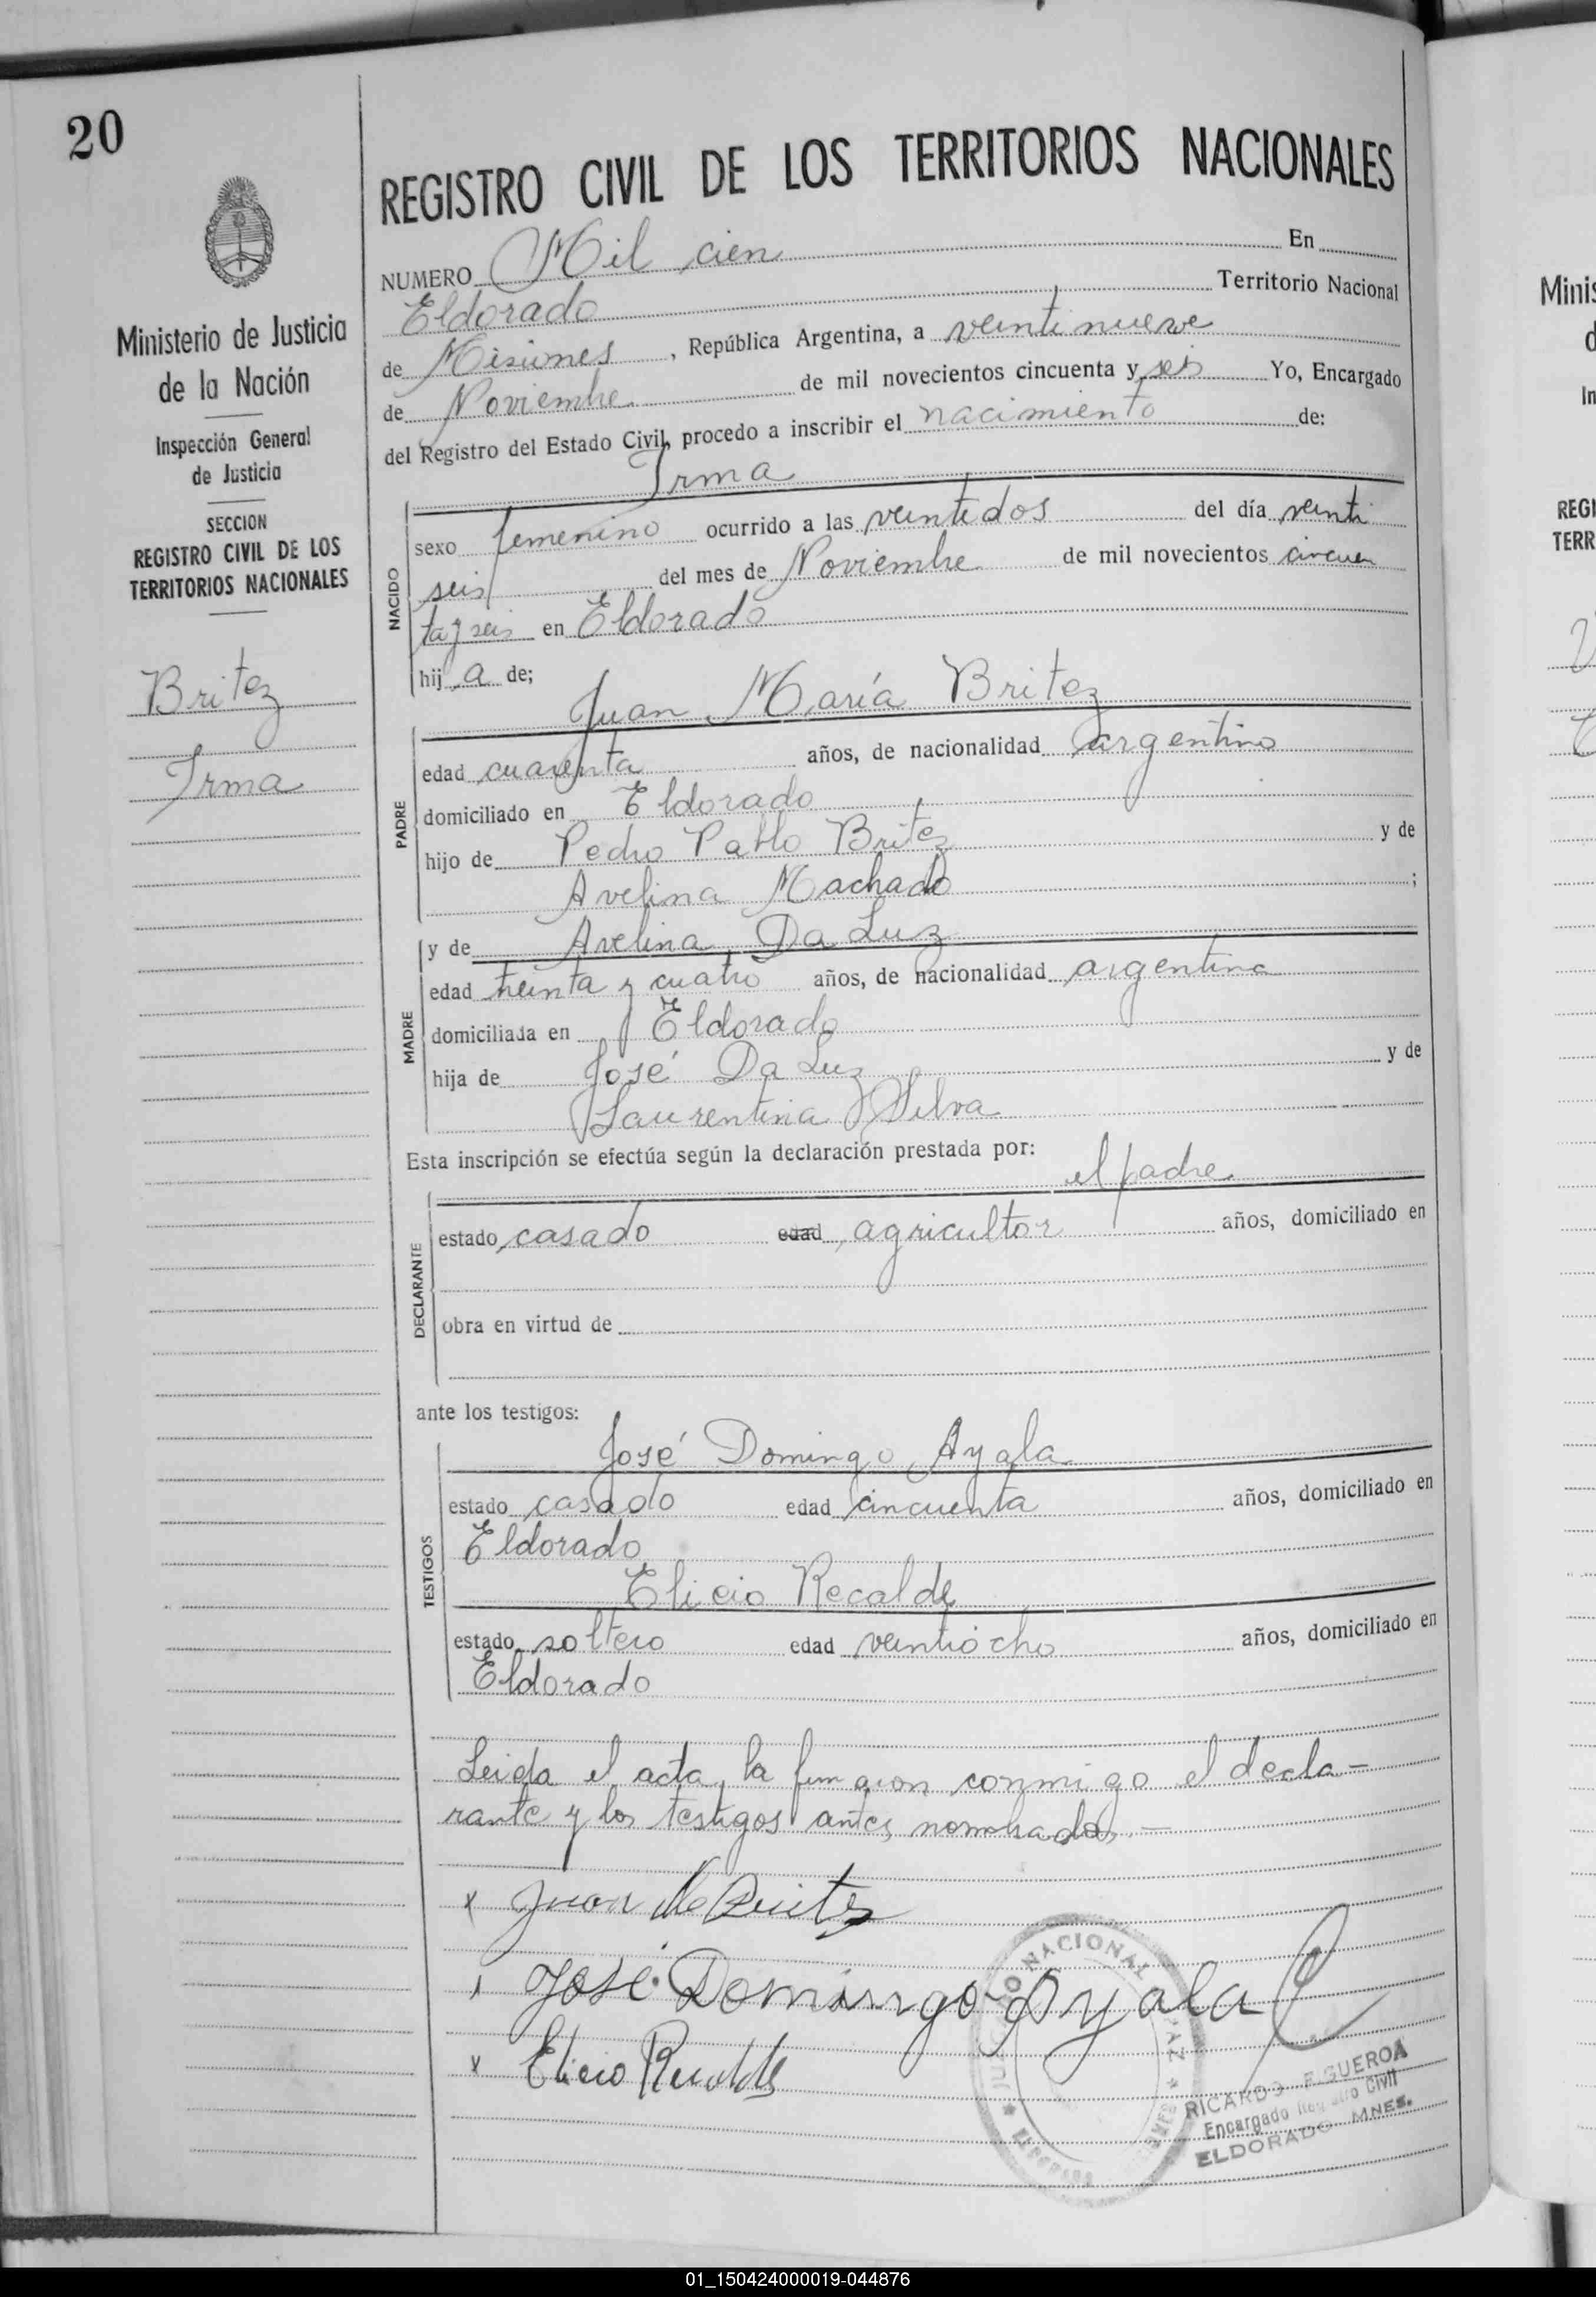 20
Ministerio de Justicia
de la Nación
Inspección General
de Justicia
SECCION
REGISTRO CIVIL DE LOS
TERRITORIOS NACIONALES
Britez
Irma
REGISTRO CIVIL DE LOS TERRITORIOS NACIONALES
NUMERO Mil cien En
Eldorado Territorio Nacional
de Misiones, República Argentina, a veinti nueve
de Noviembre de mil novecientos cincuenta y seis Yo, Encargado
del Registro del Estado Civil, procedo a inscribir el nacimiento de:
Irma
NACIDO
sexo femenino ocurrido a las veintidos del día veinti
seis del mes de Noviembre de mil novecientos cincuen
ta y seis en Eldorado
hij a de;
Juan María Britez
PADRE
edad cuarenta años, de nacionalidad argentino
domiciliado en Eldorado
hijo de Pedro Pablo Britez y de
Avelina Machado ;
MADRE
y de Avelina Da Luz
edad treinta y cuatro años, de nacionalidad argentina
domiciliada en Eldorado
hija de José Da Luz y de
Laurentina Silva
Esta inscripción se efectúa según la declaración prestada por:
el padre
DECLARANTE
estado casado edad agricultor años, domiciliado en
obra en virtud de
ante los testigos:
José Domingo Ayala
TESTIGOS
estado casado edad cincuenta años, domiciliado en
Eldorado
Elicio Recalde
estado soltero edad veintiocho años, domiciliado en
Eldorado
Leida el acta, la firman conmigo el decla-
rante y los testigos antes nombrados.-
x Juan M Britez
x José Domingo Ayala
x Elicio Recalde
NACIONAL
PAZ
ELDORADO
RICARDO FIGUEROA
Encargado Registro Civil
ELDORADO MNES.
Minis
d
In
REGI
TERR
01_150424000019-044876